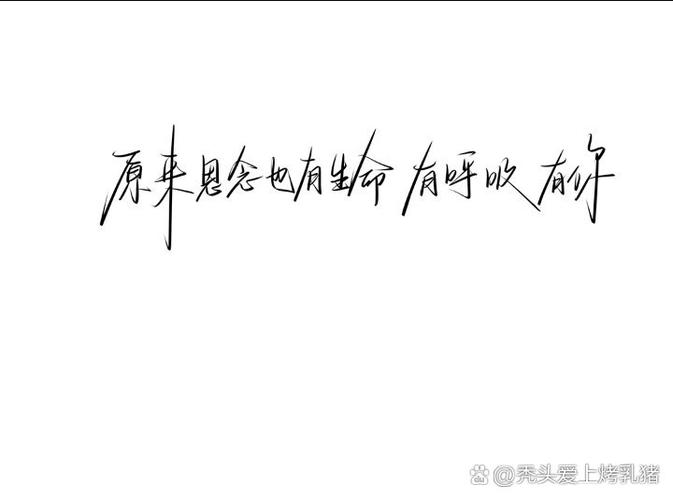 原来思念也有生命 有呼吸 有你
@秃头爱上烤乳猪